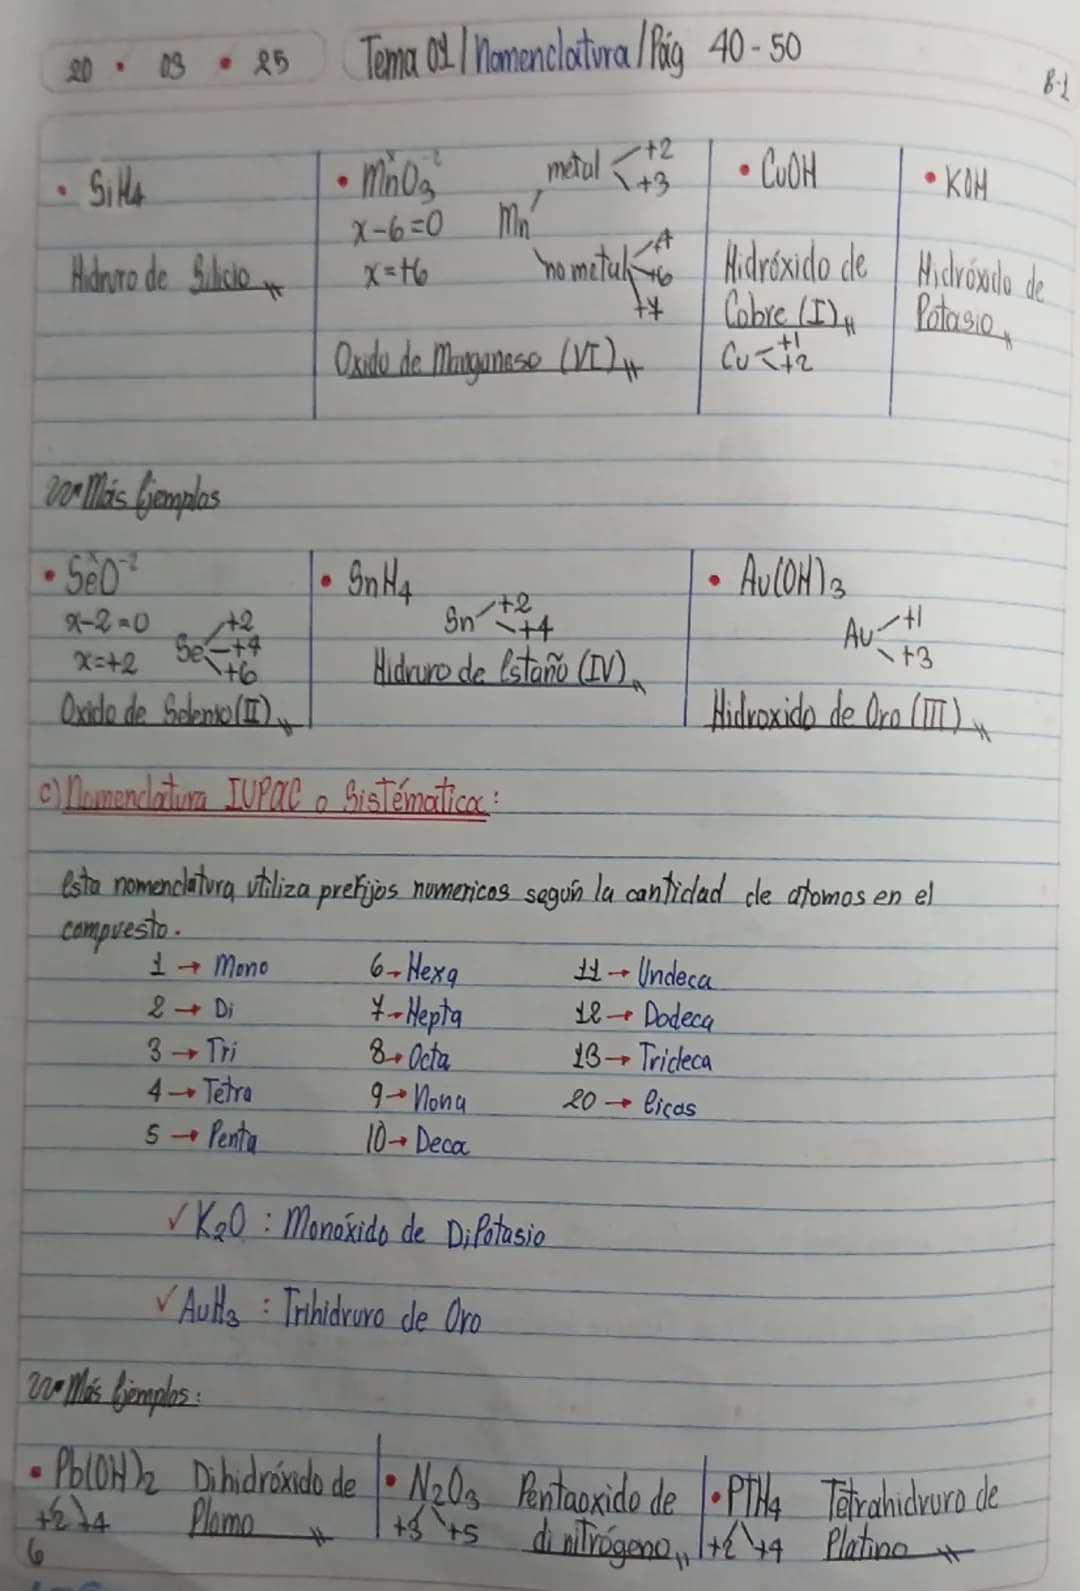 20 • 03 • 25
Tema 01 / Nomenclatura / Pág 40-50
B-1
• SiH4
Hidruro de Silicio
• MnO3
x -2
x-6=0
x=+6
Mn
metal +2 +3
no metal +4 +6 +7
Oxido de Manganeso (VI)
• CuOH
Hidróxido de
Cobre (I)
Cu +1 +2
• KOH
Hidróxido de
Potasio
Más Ejemplos
• SeO
x -2
x-2=0
x=+2
Se +2 +4 +6
Oxido de Selenio (II)
• SnH4
Sn +2 +4
Hidruro de Estaño (IV)
• Au(OH)3
Au +1 +3
Hidroxido de Oro (III)
c) Nomenclatura IUPAC o Sistématica:
Esta nomenclatura utiliza prefijos numericos según la cantidad de atomos en el
compuesto.
1 → Mono
2 → Di
3 → Tri
4 → Tetra
5 → Penta
6 → Hexa
7 → Hepta
8 → Octa
9 → Nona
10 → Deca
11 → Undeca
12 → Dodeca
13 → Trideca
20 → Eicos
✓ K2O : Monóxido de DiPotasio
✓ AuH3 : Trihidruro de Oro
Más Ejemplos:
• Pb(OH)2 Dihidróxido de
+2 +4 Plomo
• N2O3 Pentaoxido de
+3 +5 di nitrógeno
• PTH4 Tetrahidruro de
+2 +4 Platino
6